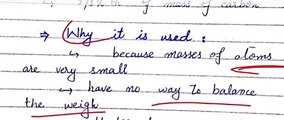 of mass of carbon
⇒ Why it is used :
↳ because masses of atoms
are very small
↳ have no way To balance
the weigh